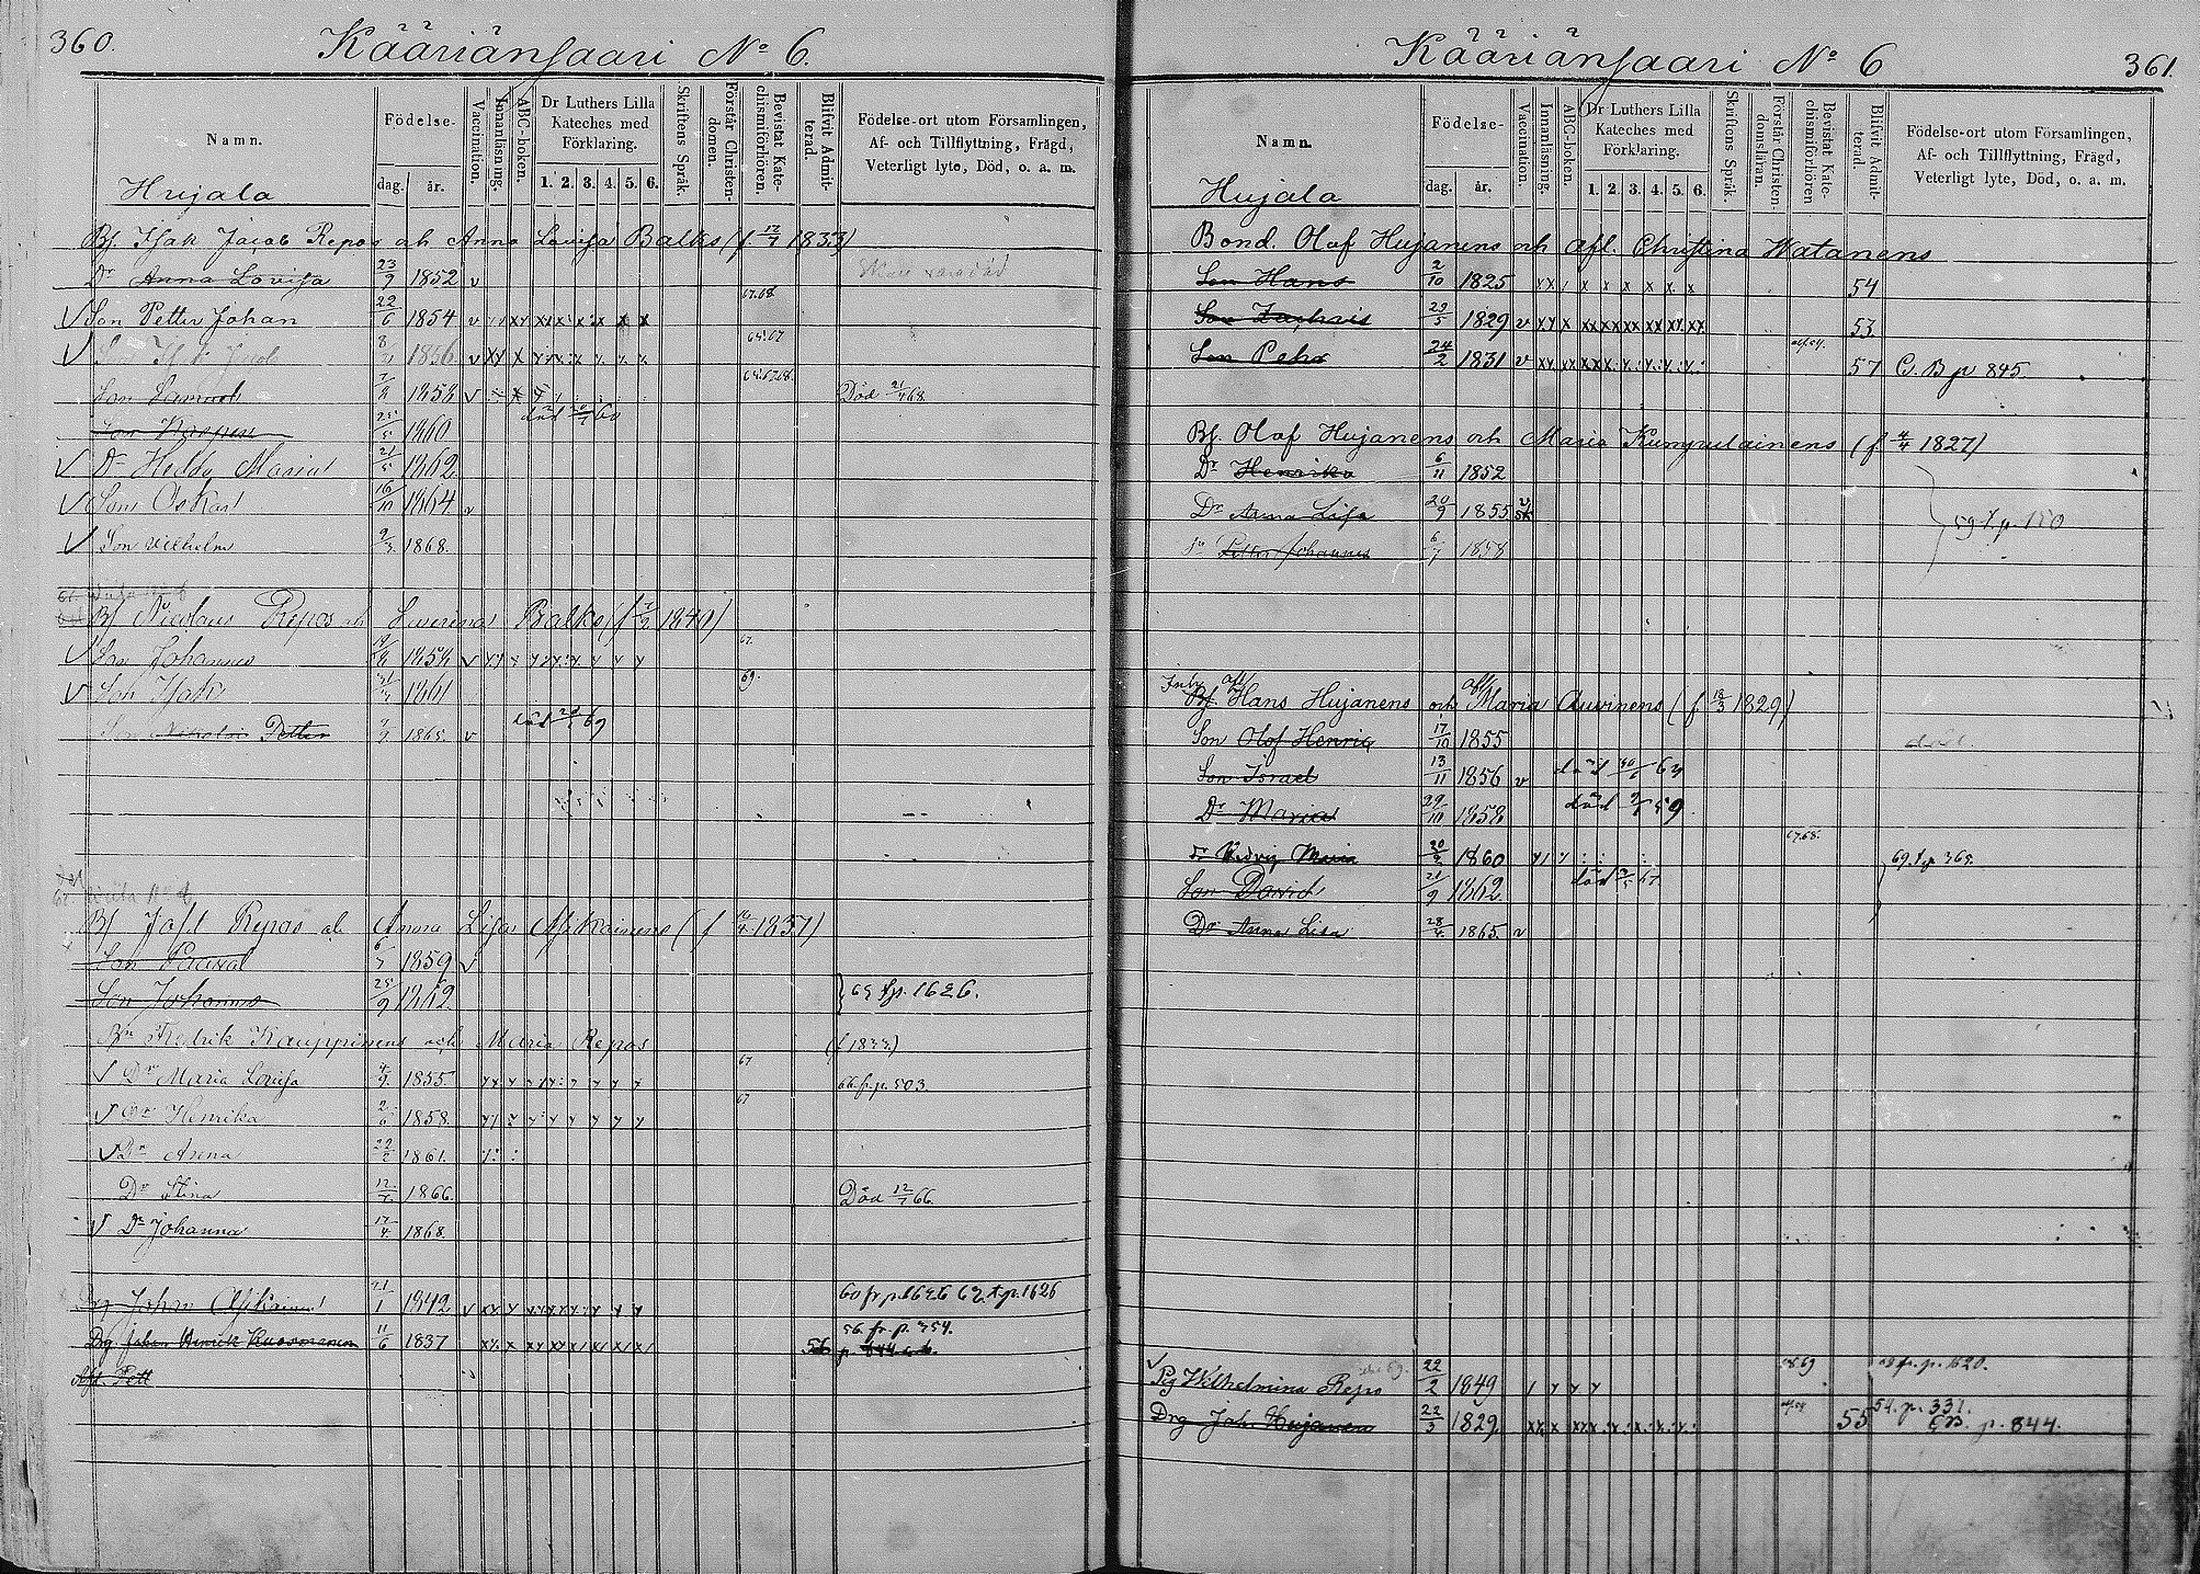 360.
Kääriänsaari No 6.
Namn.
Födelse-
dag.
år.
Vaccination.
Innanläsning.
ABC-boken.
Dr Luthers Lilla
Kateches med
Förklaring.
1. 2. 3. 4. 5. 6.
Skriftens Språk.
Förstår Christendomen.
Bevistat Katechismiförhören.
Blifvit Admitterad.
Födelse-ort utom Församlingen,
Af- och Tillflyttning, Frägd,
Veterligt lyte, Död, o. a. m.
Hujala
Bf. Isak Jacob Repos och Anna Lovisa Balks (f. 12/7 1833)
Dr Anna Lovisa 23/9 1852 v
Son Petter Johan 22/6 1854 v 67.68
Son Isak Jacob 1856 v
Son Samuel 1858 v Död 21/4 68
Son Kasper 25/5 1860 död 60
Dr Hedda Maria 21/5 1862
Son Oskar 16/10 1864 v
Son Vilhelm 1868.
Bf Nicolaus Repos och Severina Balks (f 1840)
Son Johannes 1858 v 67.
Son Isak 1861 69.
Son Nikolai Petter 1865. v död 69
Bf Jost Repos och Anna Lisa Asikainens (f 1837)
Son Paaval 6/7 1859 v
Son Johannes 25/9 1862 t.p. 1626.
Bfn Fredrik Kauppinens och Maria Repos (f 1833)
Dr Maria Lovisa 1855. 67 66. fr. p. 503.
Dr Henrika 1858. 67
Dr Anna 22/2 1861.
Dr Stina 12/7 1866. Död 12/7 66.
Dr Johanna 17/4 1868.
Drg Johan Asikainens 21/1 1842 v 60 fr p. 1626 62. t.p. 1626
Drg Johan Henrik Kuosmanen 11/6 1837 56 56. fr. p. 354.
Afl. Pett
Kääriänsaari No 6
361.
Namn.
Födelse-
dag.
år.
Vaccination.
Innanläsning.
ABC-boken.
Dr Luthers Lilla
Kateches med
Förklaring.
1. 2. 3. 4. 5. 6.
Skriftens Språk.
Förstår Christendomsläran.
Bevistat Katechismiförhören
Blifvit Admitterad.
Födelse-ort utom Församlingen,
Af- och Tillflyttning, Frägd,
Veterligt lyte, Död, o. a. m.
Hujala
Bond. Olof Hujanens och afl. Christina Watanens
Son Hans 2/10 1825 54
Son Zachris 29/5 1829 v 53.
Son Pehr 24/2 1831 v 57 C. B p 845.
Bf. Olof Hujanens och Maria Kumpulainens (f 4/4 1827)
Dr Henrika 6/11 1852
Dr Anna Lisa 20/9 1855 59 t. p. 150
Sn Petter Johannes 6/7 1858
Bf Hans Hujanens och afl Maria Auvinens (f 18/3 1829)
Son Olof Henric 17/10 1855
Son Israel 13/11 1856 v död
Dr Maria 29/10 1858 död 59
Dr Hedvig Maria 1860 67.68. 69. t.p. 365.
Son David 21/9 1862 död
Dr Anna Lisa 28/4. 1865. v
Pig Wilhelmina Repo 22/2 1849 fr. p. 1620.
Drg Joh. Hujanen 22/3 1829. 55 54. p. 331.
CB. p. 844.